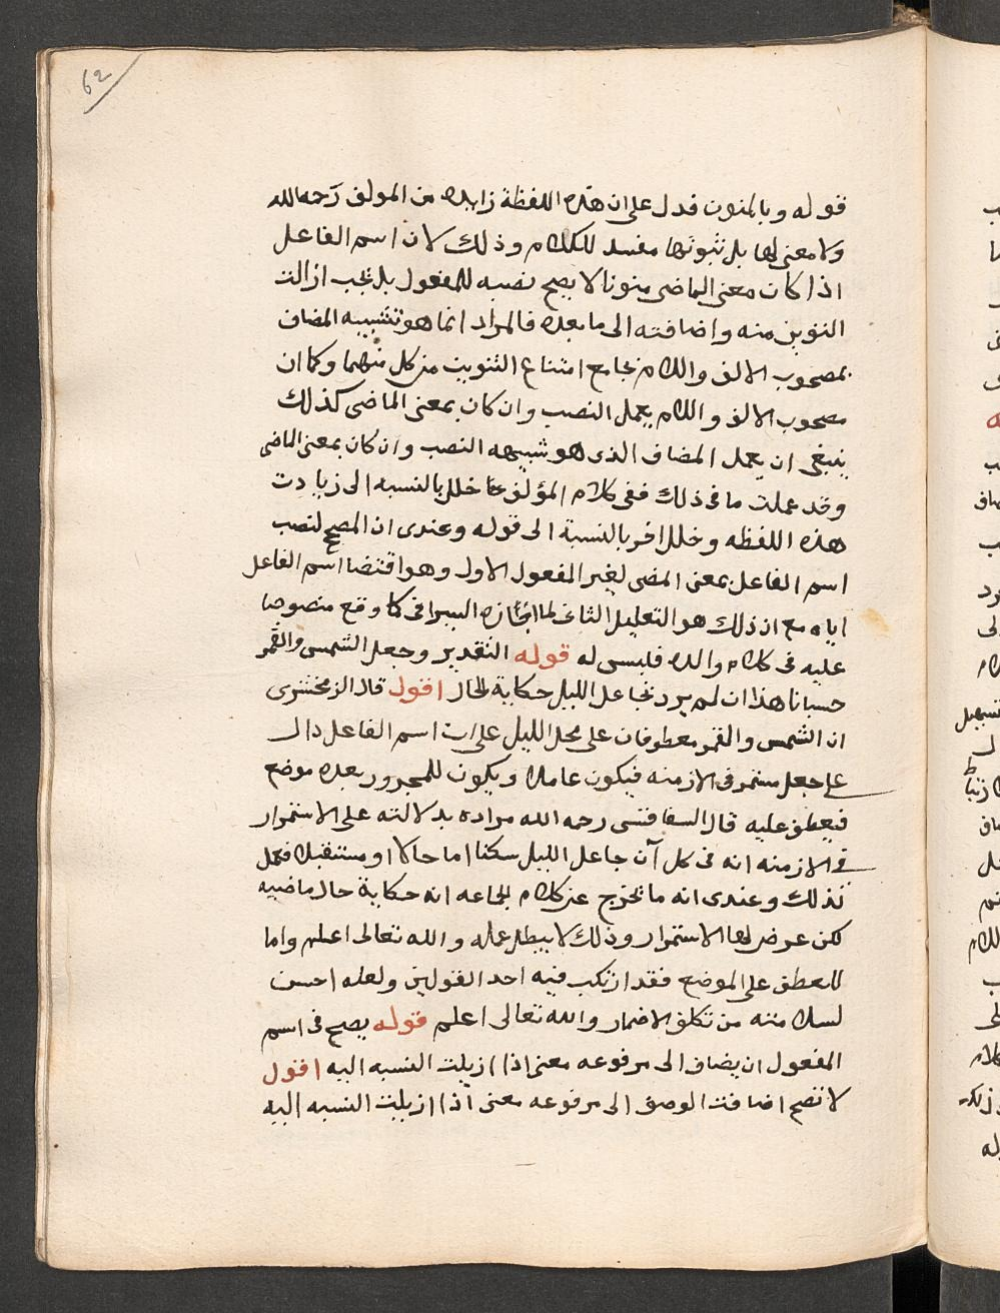 62
قوله وبالمنون فدل على ان هذه اللفظة زايده من المولف رحمه الله
ولا معنى لها بل ثبوتها مفسد للكلام وذلك لان اسم الفاعل
اذا كان معنى الماضى منونا لا يصح نصبه للمفعول بل تجب ازالت
التنوين منه واضافته الى ما بعده فالمراد انما هو تشبيه المضاف
بمصحوب الالف واللام بجامع امتناع التنوين من كل منهما وكما ان
مصحوب الالف واللام يعمل النصب وان كان بمعنى الماضى كذلك
ينبغى ان يعمل المضاف الذى هو شبيهه النصب وان كان بمعنى الماضى
وقد عملت ما فى ذلك ففى كلام المؤلف خلل بالنسبه الى زيادت
هذه اللفظه وخلل اخر بالنسبة الى قوله وعندى ان المصحح لنصب
اسم الفاعل بمعنى المضى لغير المفعول الاول وهو اقتضا اسم الفاعل
اياه مع ان ذلك هو التعليل الثانى لما اختاره السيرافى كما وقع منصوصا
عليه فى كلام والده فليس له قوله التقدير وجعل الشمس والقمر
حسبانا هذا ان لم يرد بجاعل الليل حكاية الحال اقول قال الزمخشرى
ان الشمس والقمر معطوفان على محل الليل على ان اسم الفاعل دال
على جعل مستمر فى الازمنه فيكون عاملا ويكون للمجرور بعده موضع
فيعطف عليه قال السفاقسى رحمه الله مراده بدلالته على الاستمرار
فى الازمنه انه فى كل آن جاعل الليل سكنا اما حالا او مستقبلا فعمل
لذلك وعندى انه ما تخرج عن كلام الجماعه انه حكاية حال ماضيه
لكن عرض لها الاستمرار وذلك لا يبطل عمله والله تعالى اعلم واما
العطف على الموضع فقد ارتكب فيه احد القولين ولعله احسن
لسلامته من تكلف الاضمار والله تعالى اعلم قوله يصح فى اسم
المفعول ان يضاف الى مرفوعه معنى اذا ازيلت النسبه اليه اقول
لا تصح اضافت الوصف الى مرفوعه معنى اذا ازيلت النسبه اليه